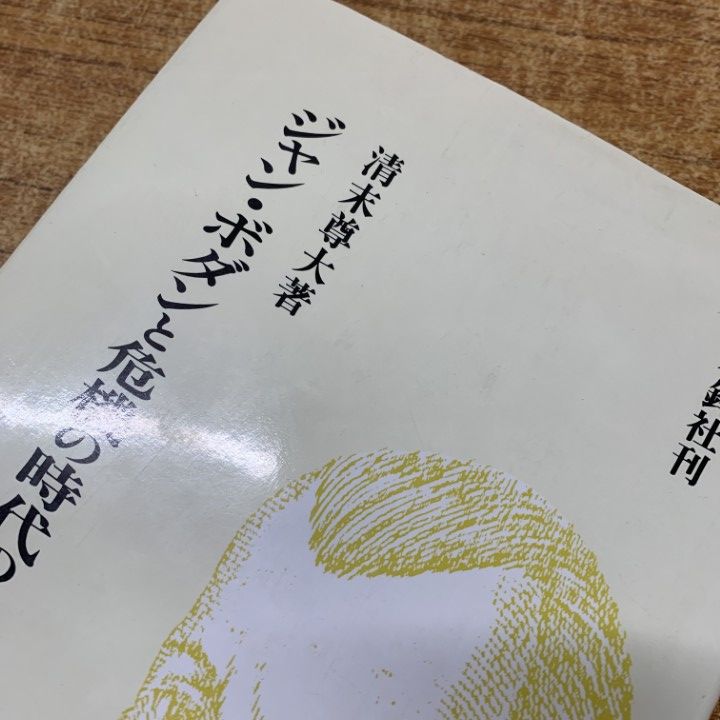 清末尊大著
ジャン・ボダンと危機の時代の
社刊